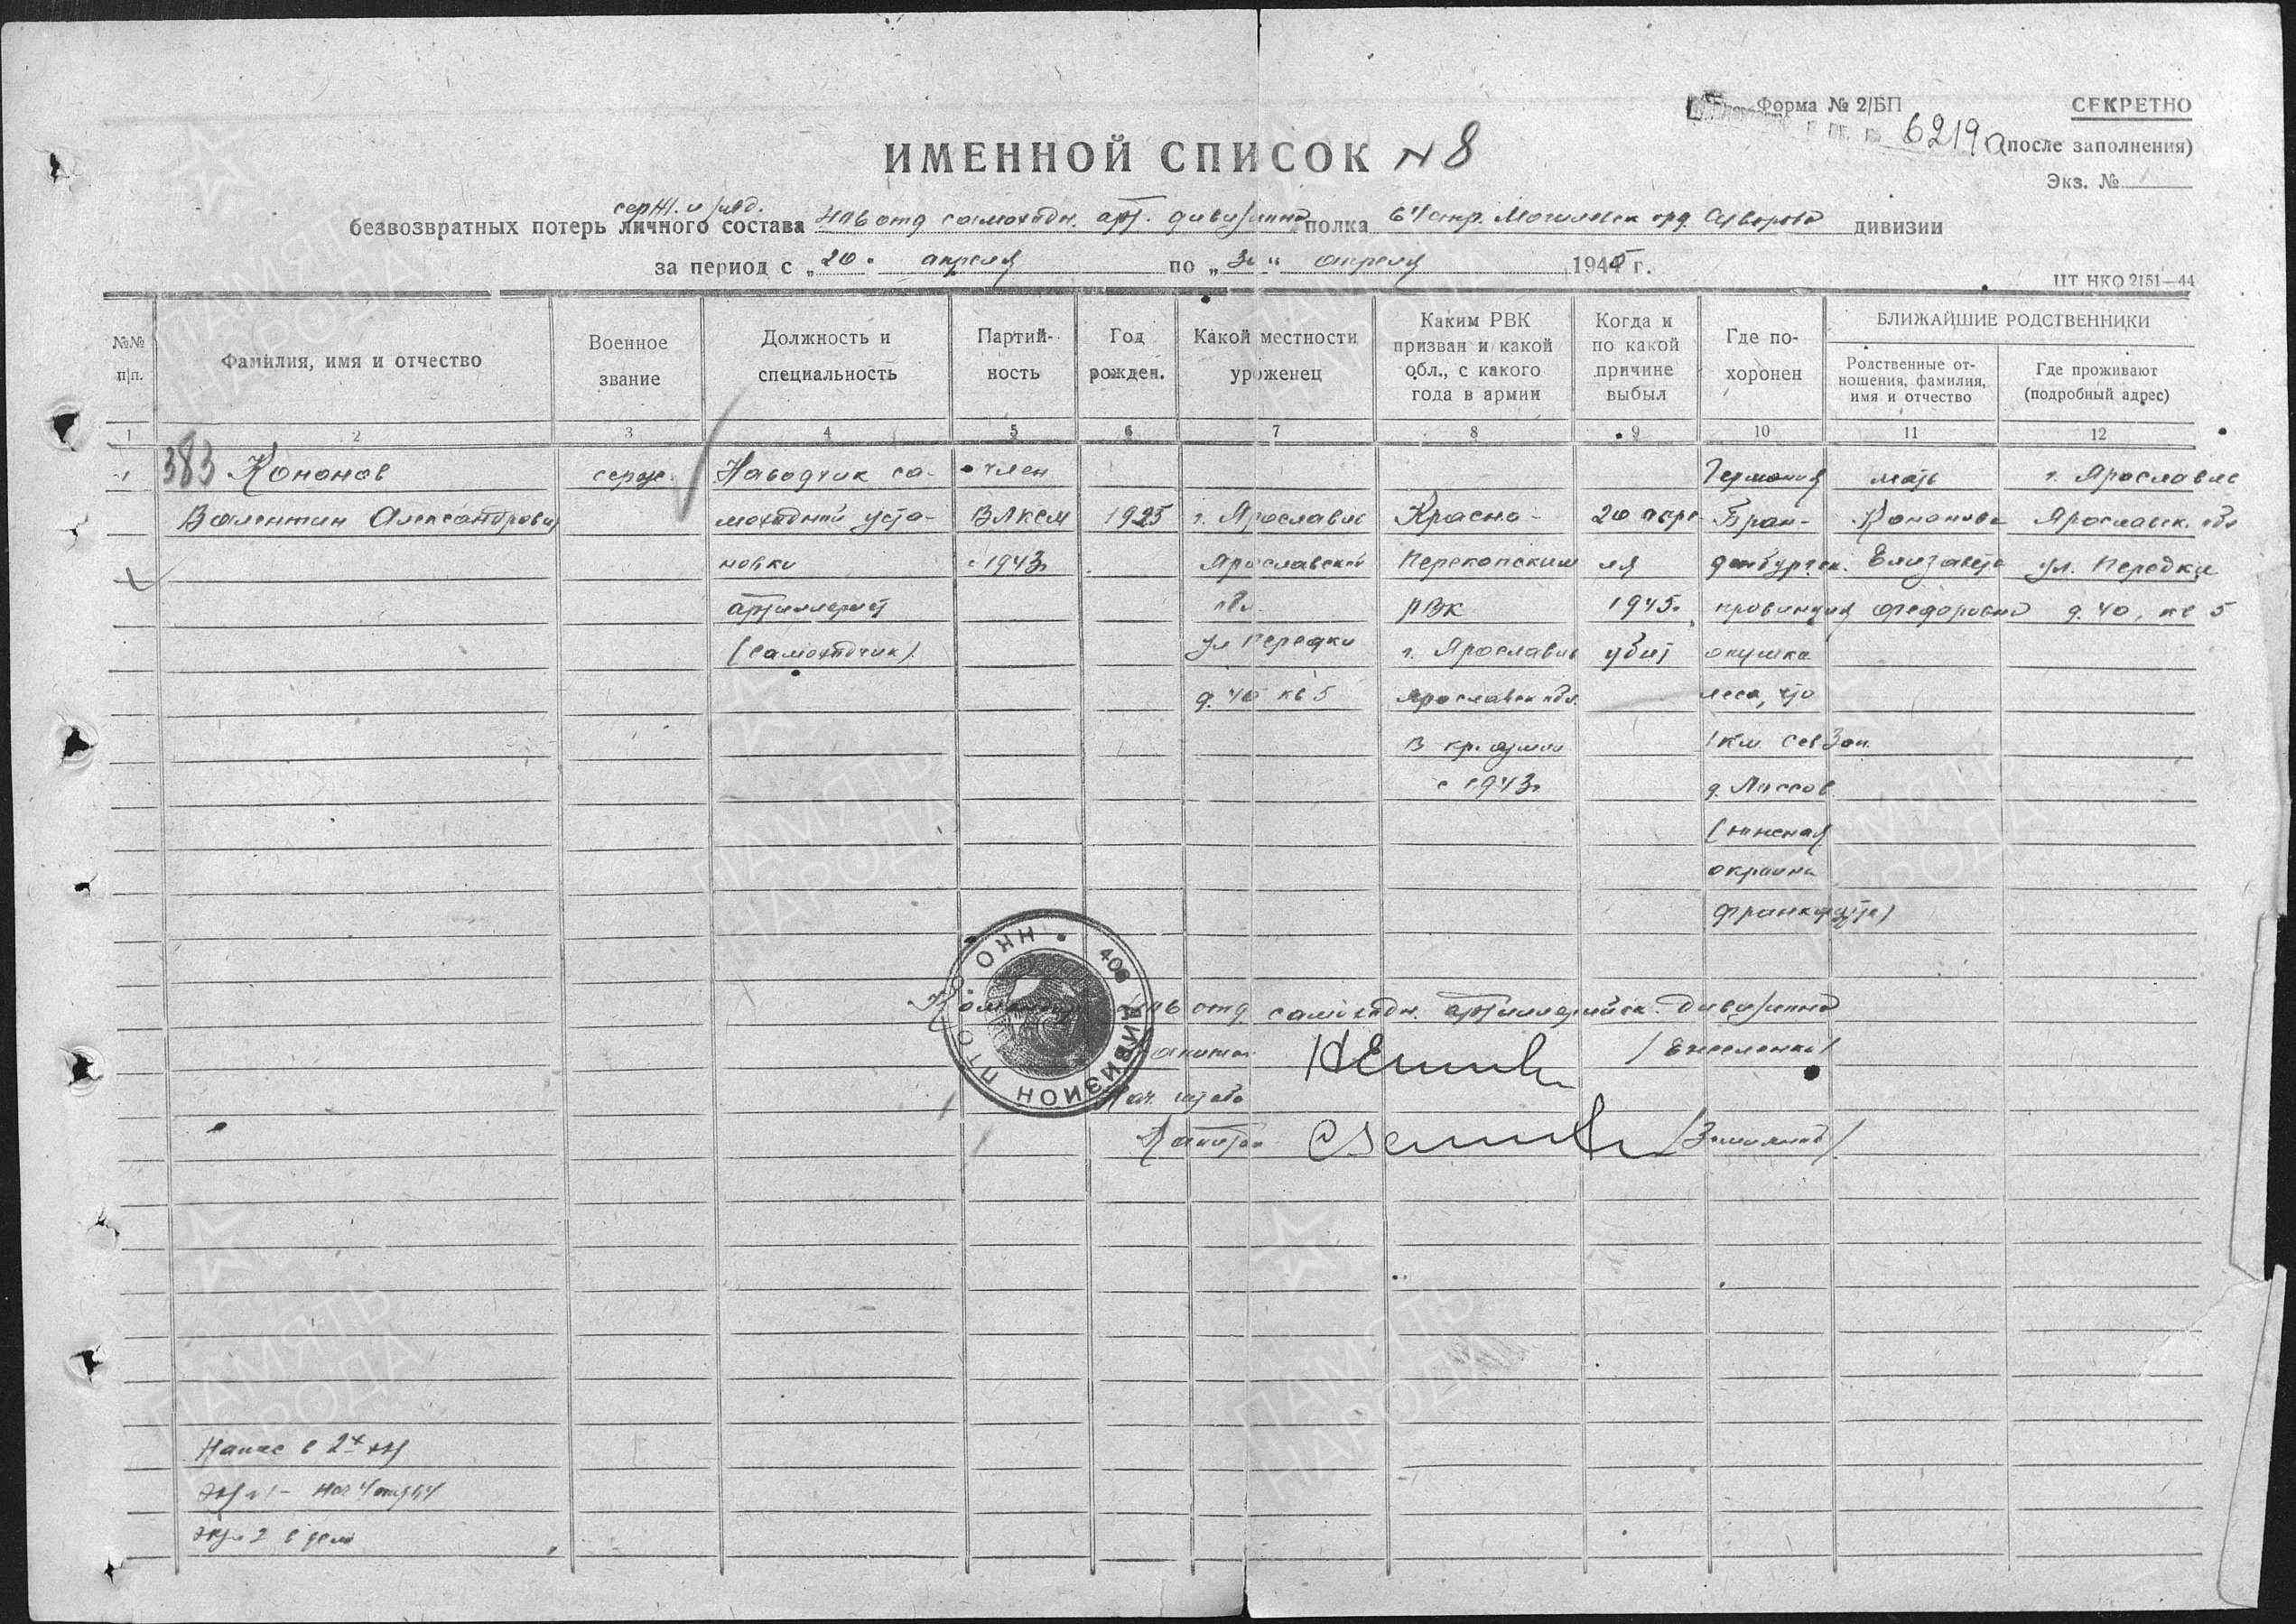 Форма № 2/БП
СЕКРЕТНО
6219а
(после заполнения)
Экз. №
ИМЕННОЙ СПИСОК N 8
серж. и ряд.
безвозвратных потерь личного состава отд самоходн. арт. дивизиона полка 64 стр. Могилевск орд. Суворова дивизии
за период с „20" апреля по „30" апреля 1945 г.
ЦТ НКО 2151—44
№№ п/п.
Фамилия, имя и отчество
Военное звание
Должность и специальность
Партий-ность
Год рожден.
Какой местности уроженец
Каким РВК призван и какой обл., с какого года в армии
Когда и по какой причине выбыл
Где по-хоронен
БЛИЖАЙШИЕ РОДСТВЕННИКИ
Родственные от-ношения, фамилия, имя и отчество
Где проживают (подробный адрес)
1 2 3 4 5 6 7 8 9 10 11 12
1 383 Кононов серж. Наводчик са- член Германия мать г. Ярославль
Валентин Александрович моходной уста- ВЛКСМ 1925 г. Ярославль Красно- 20 апре- Бран- Кононова Ярославск. обл
новки с 1943г Ярославской Перекопским ля денбургск. Елизавета ул. Передки
артиллерист обл. РВК 1945г. провинция Федоровна д. 40, кв 5
(самоходчик) ул Передки г. Ярославль убит опушка
д. 40 кв 5 Ярославск обл. леса, что
в кр. армии 1 км сев зап.
с 1943г д. Лоссов
(южная
окраина
Франкфурта)
НКО • 406 ДИВИЗИОН ПТО
отд. самоходн. артиллерийск. дивизиона
капитан
Нач. штаба
Капитан
Напис в 2х экз
экз 1 —
экз 2 в дело
ПАМЯТЬ НАРОДА